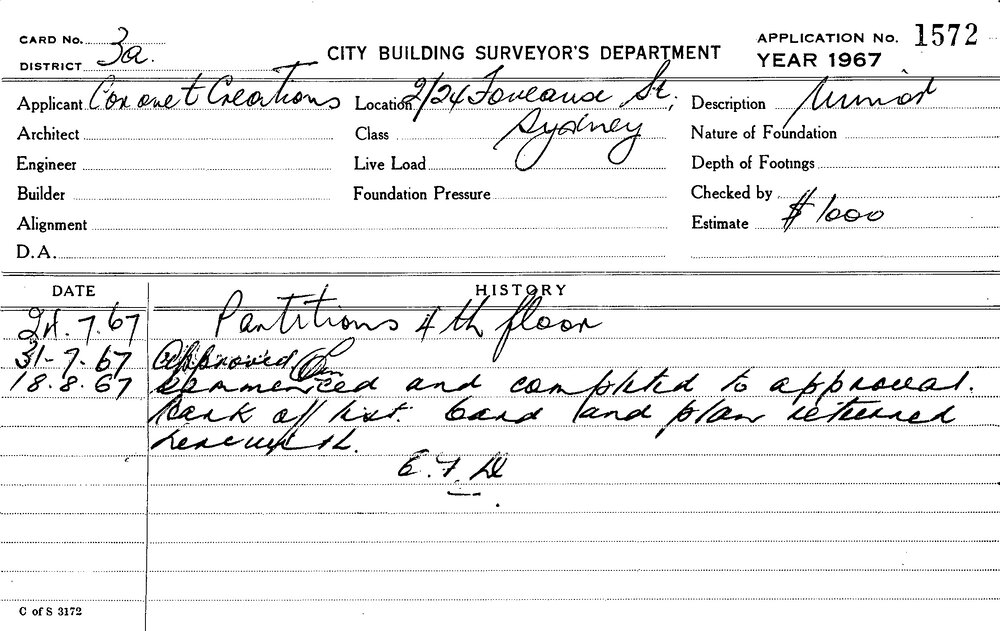 CARD No. 3a.
DISTRICT
CITY BUILDING SURVEYOR'S DEPARTMENT
APPLICATION No. 1572
YEAR 1967
Applicant Coronet Creations Location 2/24 Foveaux St, Description Minor
Architect Class Sydney Nature of Foundation
Engineer Live Load Depth of Footings
Builder Foundation Pressure Checked by
Alignment Estimate $1000
D.A.
DATE HISTORY
24.7.67 Partitions 4th floor
31-7-67 Approved
18.8.67 Commenced and completed to approval.
Mark off list. Card and plan returned
herewith.
E.F.D
C of S 3172